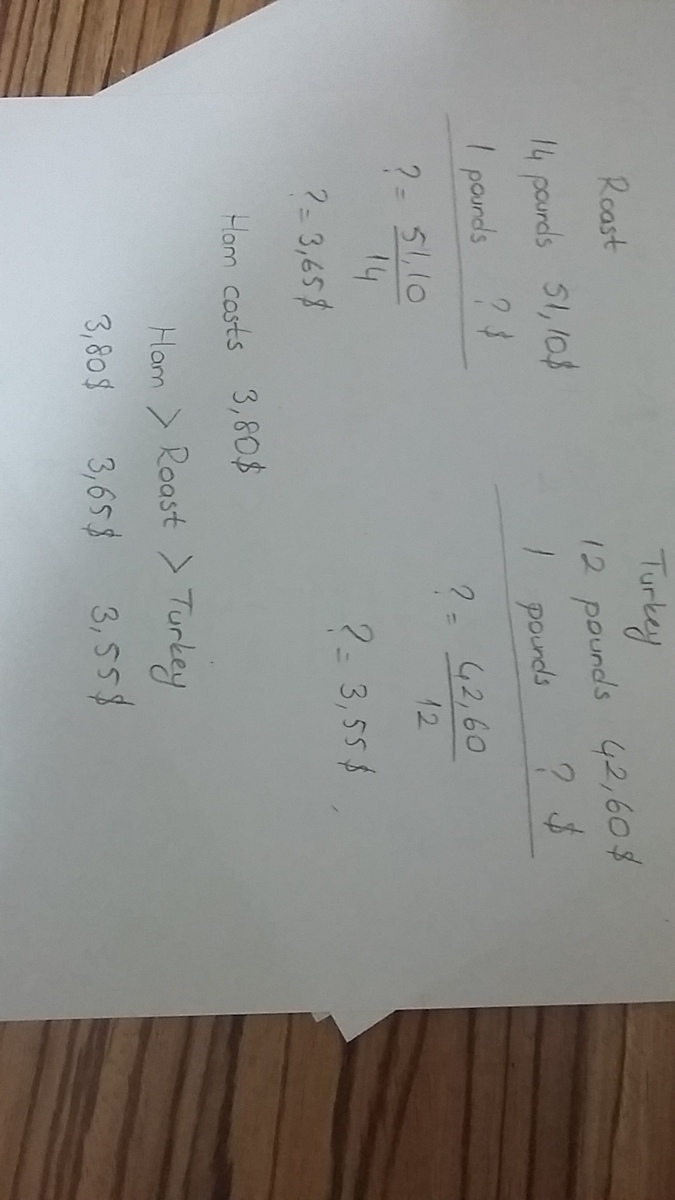 Roast
14 pounds 51,10$
1 pounds ? $
? = 51,10
14
? = 3,65$
Turkey
12 pounds 42,60$
1 pounds ? $
? = 42,60
12
? = 3,55$
Ham costs 3,80$
Ham > Roast > Turkey
3,80$ 3,65$ 3,55$